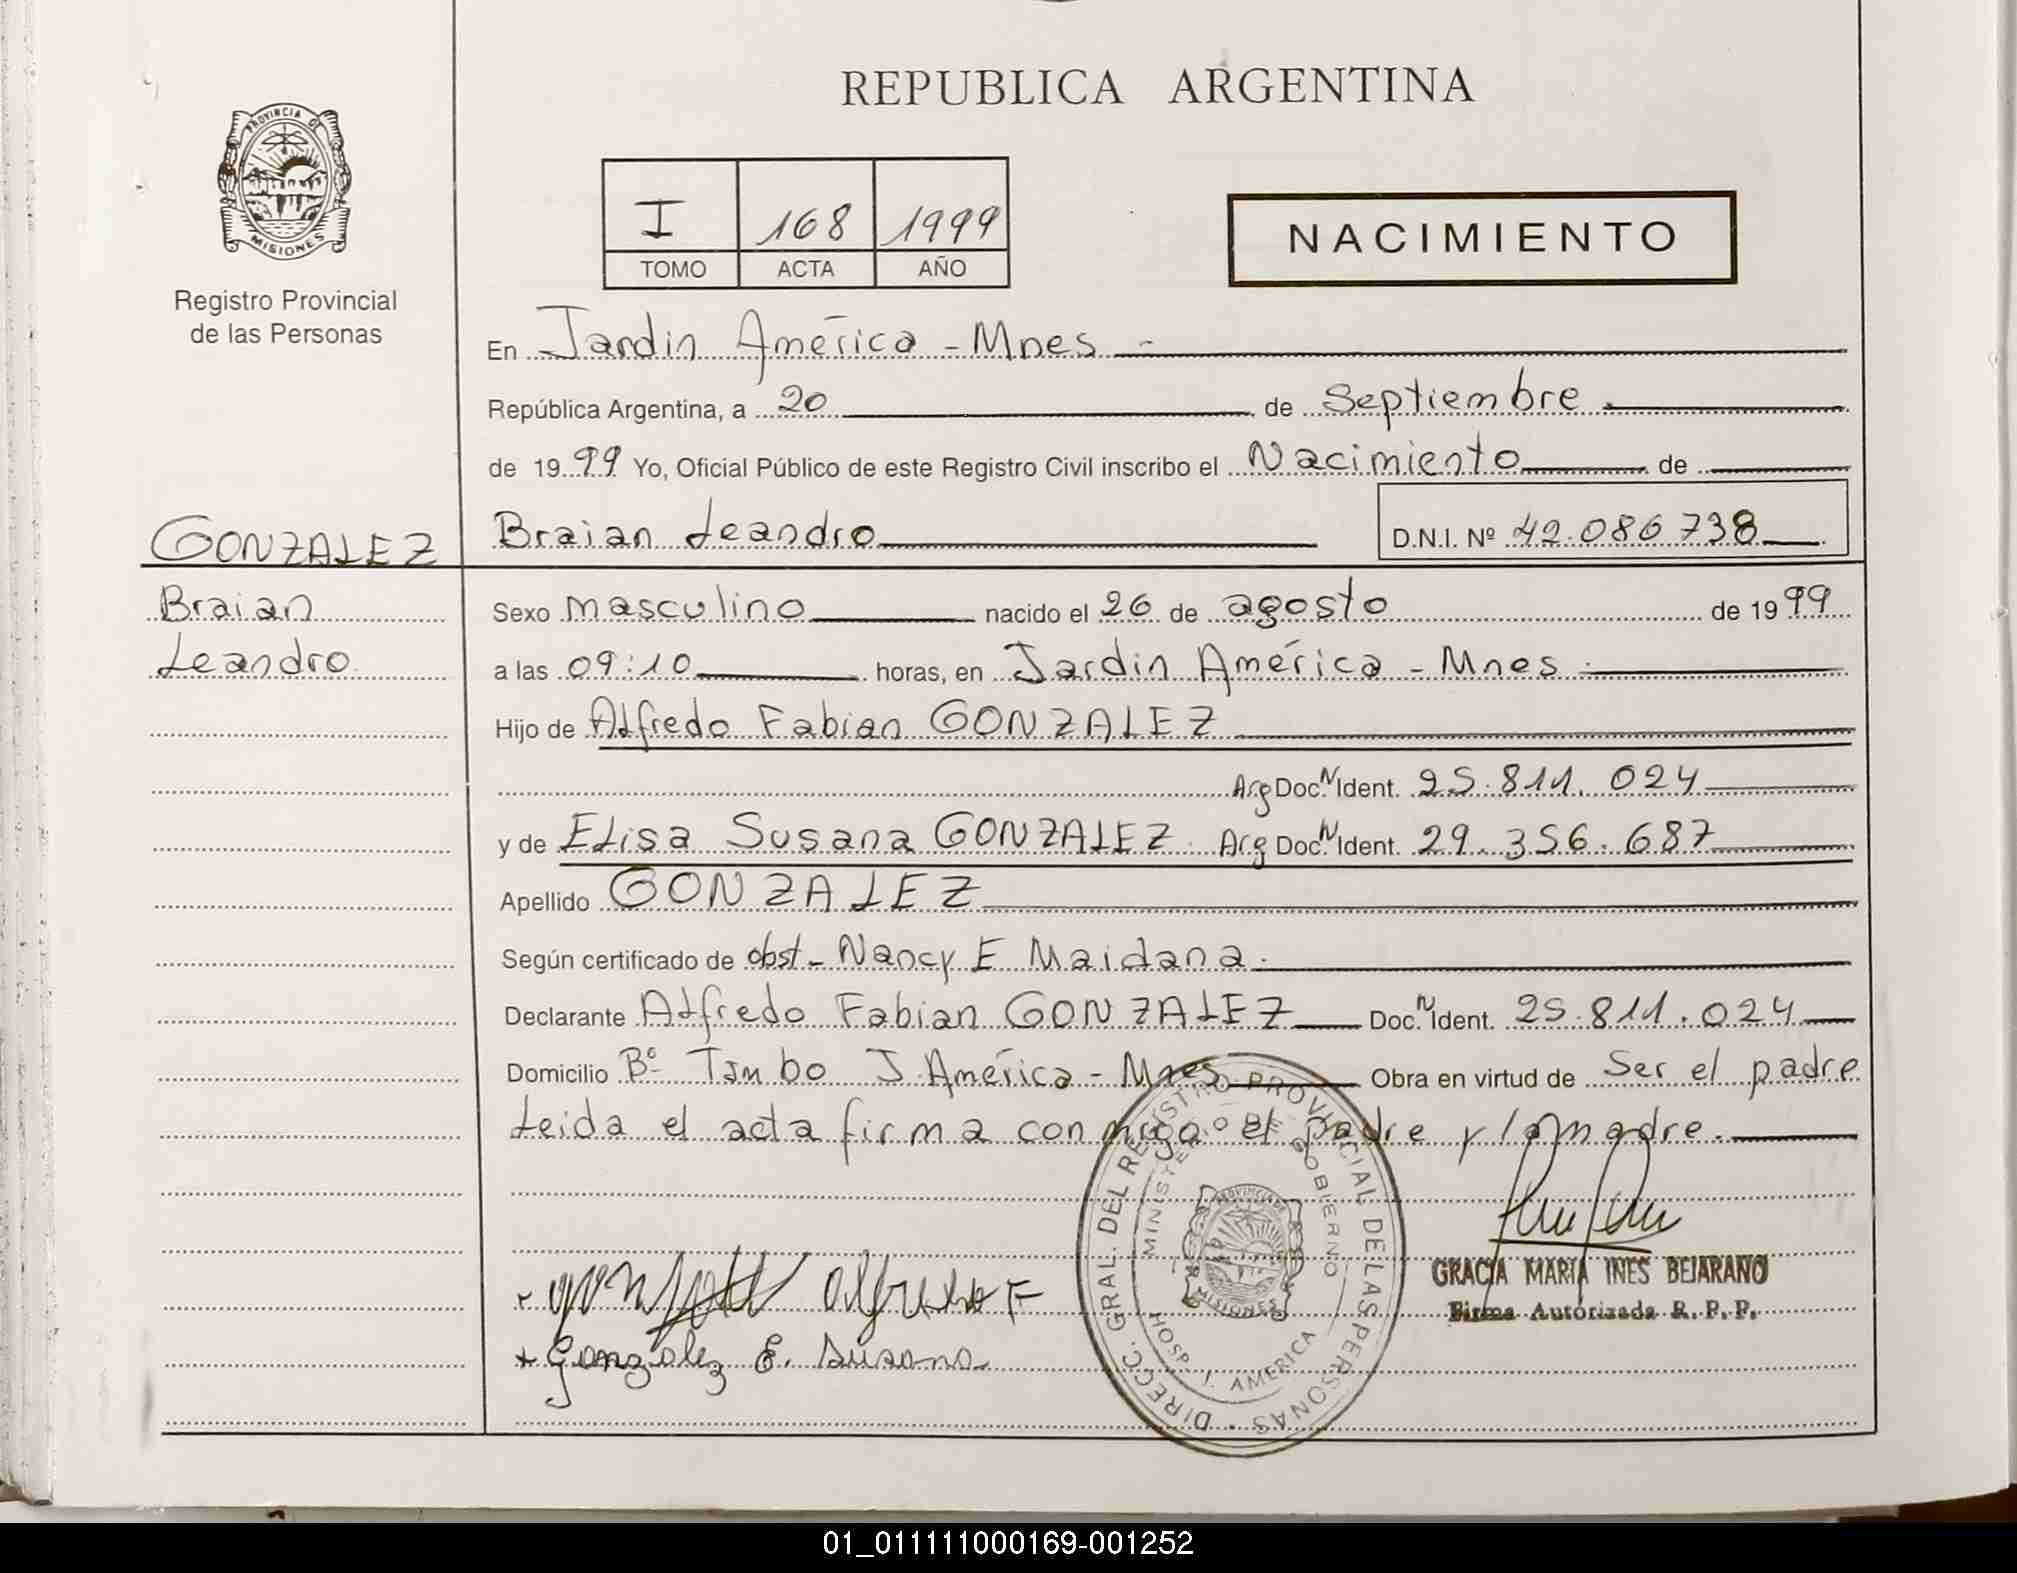 REPUBLICA ARGENTINA
PROVINCIA DE
MISIONES
Registro Provincial
de las Personas
I 168 1999
TOMO ACTA AÑO
NACIMIENTO
En Jardin América - Mnes -
República Argentina, a 20 de Septiembre
de 1999 Yo, Oficial Público de este Registro Civil inscribo el Nacimiento de
GONZALEZ Braian Leandro D.N.I. Nº 42.086738
Braian
Leandro
Sexo masculino nacido el 26 de agosto de 1999
a las 09:10 horas, en Jardin América - Mnes
Hijo de Alfredo Fabian GONZALEZ
Arg Doc. N Ident. 25.811.024
y de Elisa Susana GONZALEZ Arg Doc. N Ident. 29.356.687
Apellido GONZALEZ
Según certificado de obst- Nancy E Maidana.
Declarante Alfredo Fabian GONZALEZ Doc. N Ident. 25.811.024
Domicilio Bº Timbo J. América - Mnes Obra en virtud de Ser el padre
Leida el acta firma conmigo el padre y la madre.
DIRECC. GRAL. DEL REGISTRO PROVINCIAL DE LAS PERSONAS
MINISTERIO DE GOBIERNO
PROVINCIA DE
MISIONES
HOSP. J. AMERICA
GRACIA MARIA INES BEJARANO
Firma Autorizada R.P.P.
Gonzalez Alfredo F
Gonzalez E. Susana
01_011111000169-001252